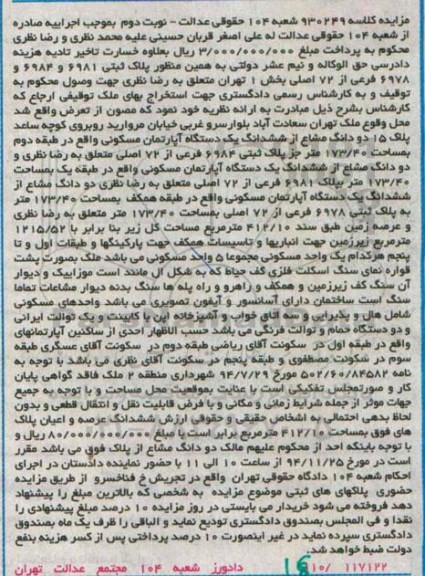 مزایده کلاسه ۹۳۰۲۴۹ شعبه ۱۰۴ حقوقی عدالت - نوبت دوم بموجب اجراییه صادره
از شعبه ۱۰۴ حقوقی عدالت له علی اصغر قربان حسینی علیه محمد نظری و رضا نظری
محکوم به پرداخت مبلغ ۳/۰۰۰/۰۰۰/۰۰۰ ریال بعلاوه خسارت تاخیر تادیه هزینه
دادرسی حق الوکاله و نیم عشر دولتی به همین منظور پلاک ثبتی ۶۹۸۱ و ۶۹۸۴ و
۶۹۷۸ فرعی از ۷۲ اصلی بخش ۱ تهران متعلق به رضا نظری جهت وصول محکوم به
توقیف و به کارشناس رسمی دادگستری جهت استخراج بهای ملک توقیفی ارجاع که
کارشناس بشرح ذیل مبادرت به ارائه نظریه خود نمود که مصون از تعرض واقع شد
محل وقوع ملک تهران سعادت آباد بلوار سرو غربی خیابان مروارید روبروی کوچه ساعد
پلاک ۱۵ دو دانگ مشاع از ششدانگ یک دستگاه آپارتمان مسکونی واقع در طبقه دوم
بمساحت ۱۷۳/۴۰ متر جز پلاک ثبتی ۶۹۸۴ فرعی از ۷۲ اصلی متعلق به رضا نظری و
دو دانگ مشاع از ششدانگ یک دستگاه آپارتمان مسکونی واقع در طبقه یک بمساحت
۱۷۳/۴۰ متر بپلاک ۶۹۸۱ فرعی از ۷۲ اصلی متعلق به رضا نظری دو دانگ مشاع از
ششدانگ یک دستگاه آپارتمان مسکونی واقع در طبقه همکف بمساحت ۱۷۳/۴۰ متر
به پلاک ثبتی ۶۹۷۸ فرعی از ۷۲ اصلی بمساحت ۱۷۳/۴۰ متر متعلق به رضا نظری
و عرصه زمین طبق سند ۴۱۲/۱۰ مترمربع مساحت کل زیر بنا برابر با ۱۲۱۵/۵۲
مترمربع زیرزمین جهت انباریها و تاسیسات همکف جهت پارکینگها و طبقات اول و تا
پنجم هرکدام یک واحد مسکونی مجموعا ۵ واحد مسکونی می باشد ملک بصورت پشت
قواره نمای سنگ اسکلت فلزی کف حیاط که به شکل ال مانند است موزاییک و دیوار
آن سنگ کف زیرزمین و همکف و راهرو و راه پله ها سنگ بدنه دیوار مشاعات تماما
سنگ است ساختمان دارای آسانسور و آیفون تصویری می باشد واحدهای مسکونی
شامل هال و پذیرایی و سه اتاق خواب و آشپزخانه اپن با کابینت و یک توالت ایرانی
و دو دستگاه حمام و توالت فرنگی می باشد حسب الاظهار احدی از ساکنین آپارتمانهای
واقع در طبقه اول در سکونت آقای ریاضی طبقه دوم در سکونت آقای عسگری طبقه
سوم در سکونت مصطفوی و طبقه پنجم در سکونت آقای نظری می باشد با توجه به
نامه ۵۰۲/۶۰/۸۴۵۸۲ مورخ ۹۴/۷/۲۹ شهرداری منطقه ۲ ملک فاقد گواهی پایان
کار و صورتمجلس تفکیکی است با عنایت بموقعیت محل مساحت و با توجه به جمیع
جهات موثر از جمله شرایط زمانی و مکانی و با فرض قابلیت نقل و انتقال قطعی و بدون
لحاظ بدهی احتمالی به اشخاص حقیقی و حقوقی ارزش ششدانگ عرصه و اعیان پلاک
های فوق بمساحت ۴۱۲/۱۰ مترمربع برابر است با مبلغ ۸۰/۰۰۰/۰۰۰/۰۰۰ ریال و
با توجه باینکه احد از محکوم علیهم مالک دو دانگ مشاع از پلاک فوق می باشد مقرر
است در مورخ ۹۴/۱۱/۲۵ از ساعت ۱۰ الی ۱۱ با حضور نماینده دادستان در اجرای
احکام شعبه ۱۰۴ دادگاه حقوقی تهران واقع در تجریش خ فناخسرو از طریق مزایده
حضوری پلاکهای های ثبتی موضوع مزایده به شخصی که بالاترین مبلغ را پیشنهاد
دهد فروخته می شود خریدار می بایستی در روز مزایده ۱۰ درصد مبلغ پیشنهادی را
نقدا و فی المجلس بصندوق دادگستری تودیع نماید و الباقی را ظرف یک ماه بصندوق
دادگستری سپرده نماید در غیر اینصورت ۱۰ درصد پرداختی پس از کسر هزینه بنفع
دولت ضبط خواهد شد.
۱۱۷۱۲۲ /۱۱۰ دادورز شعبه ۱۰۴ مجتمع عدالت تهران